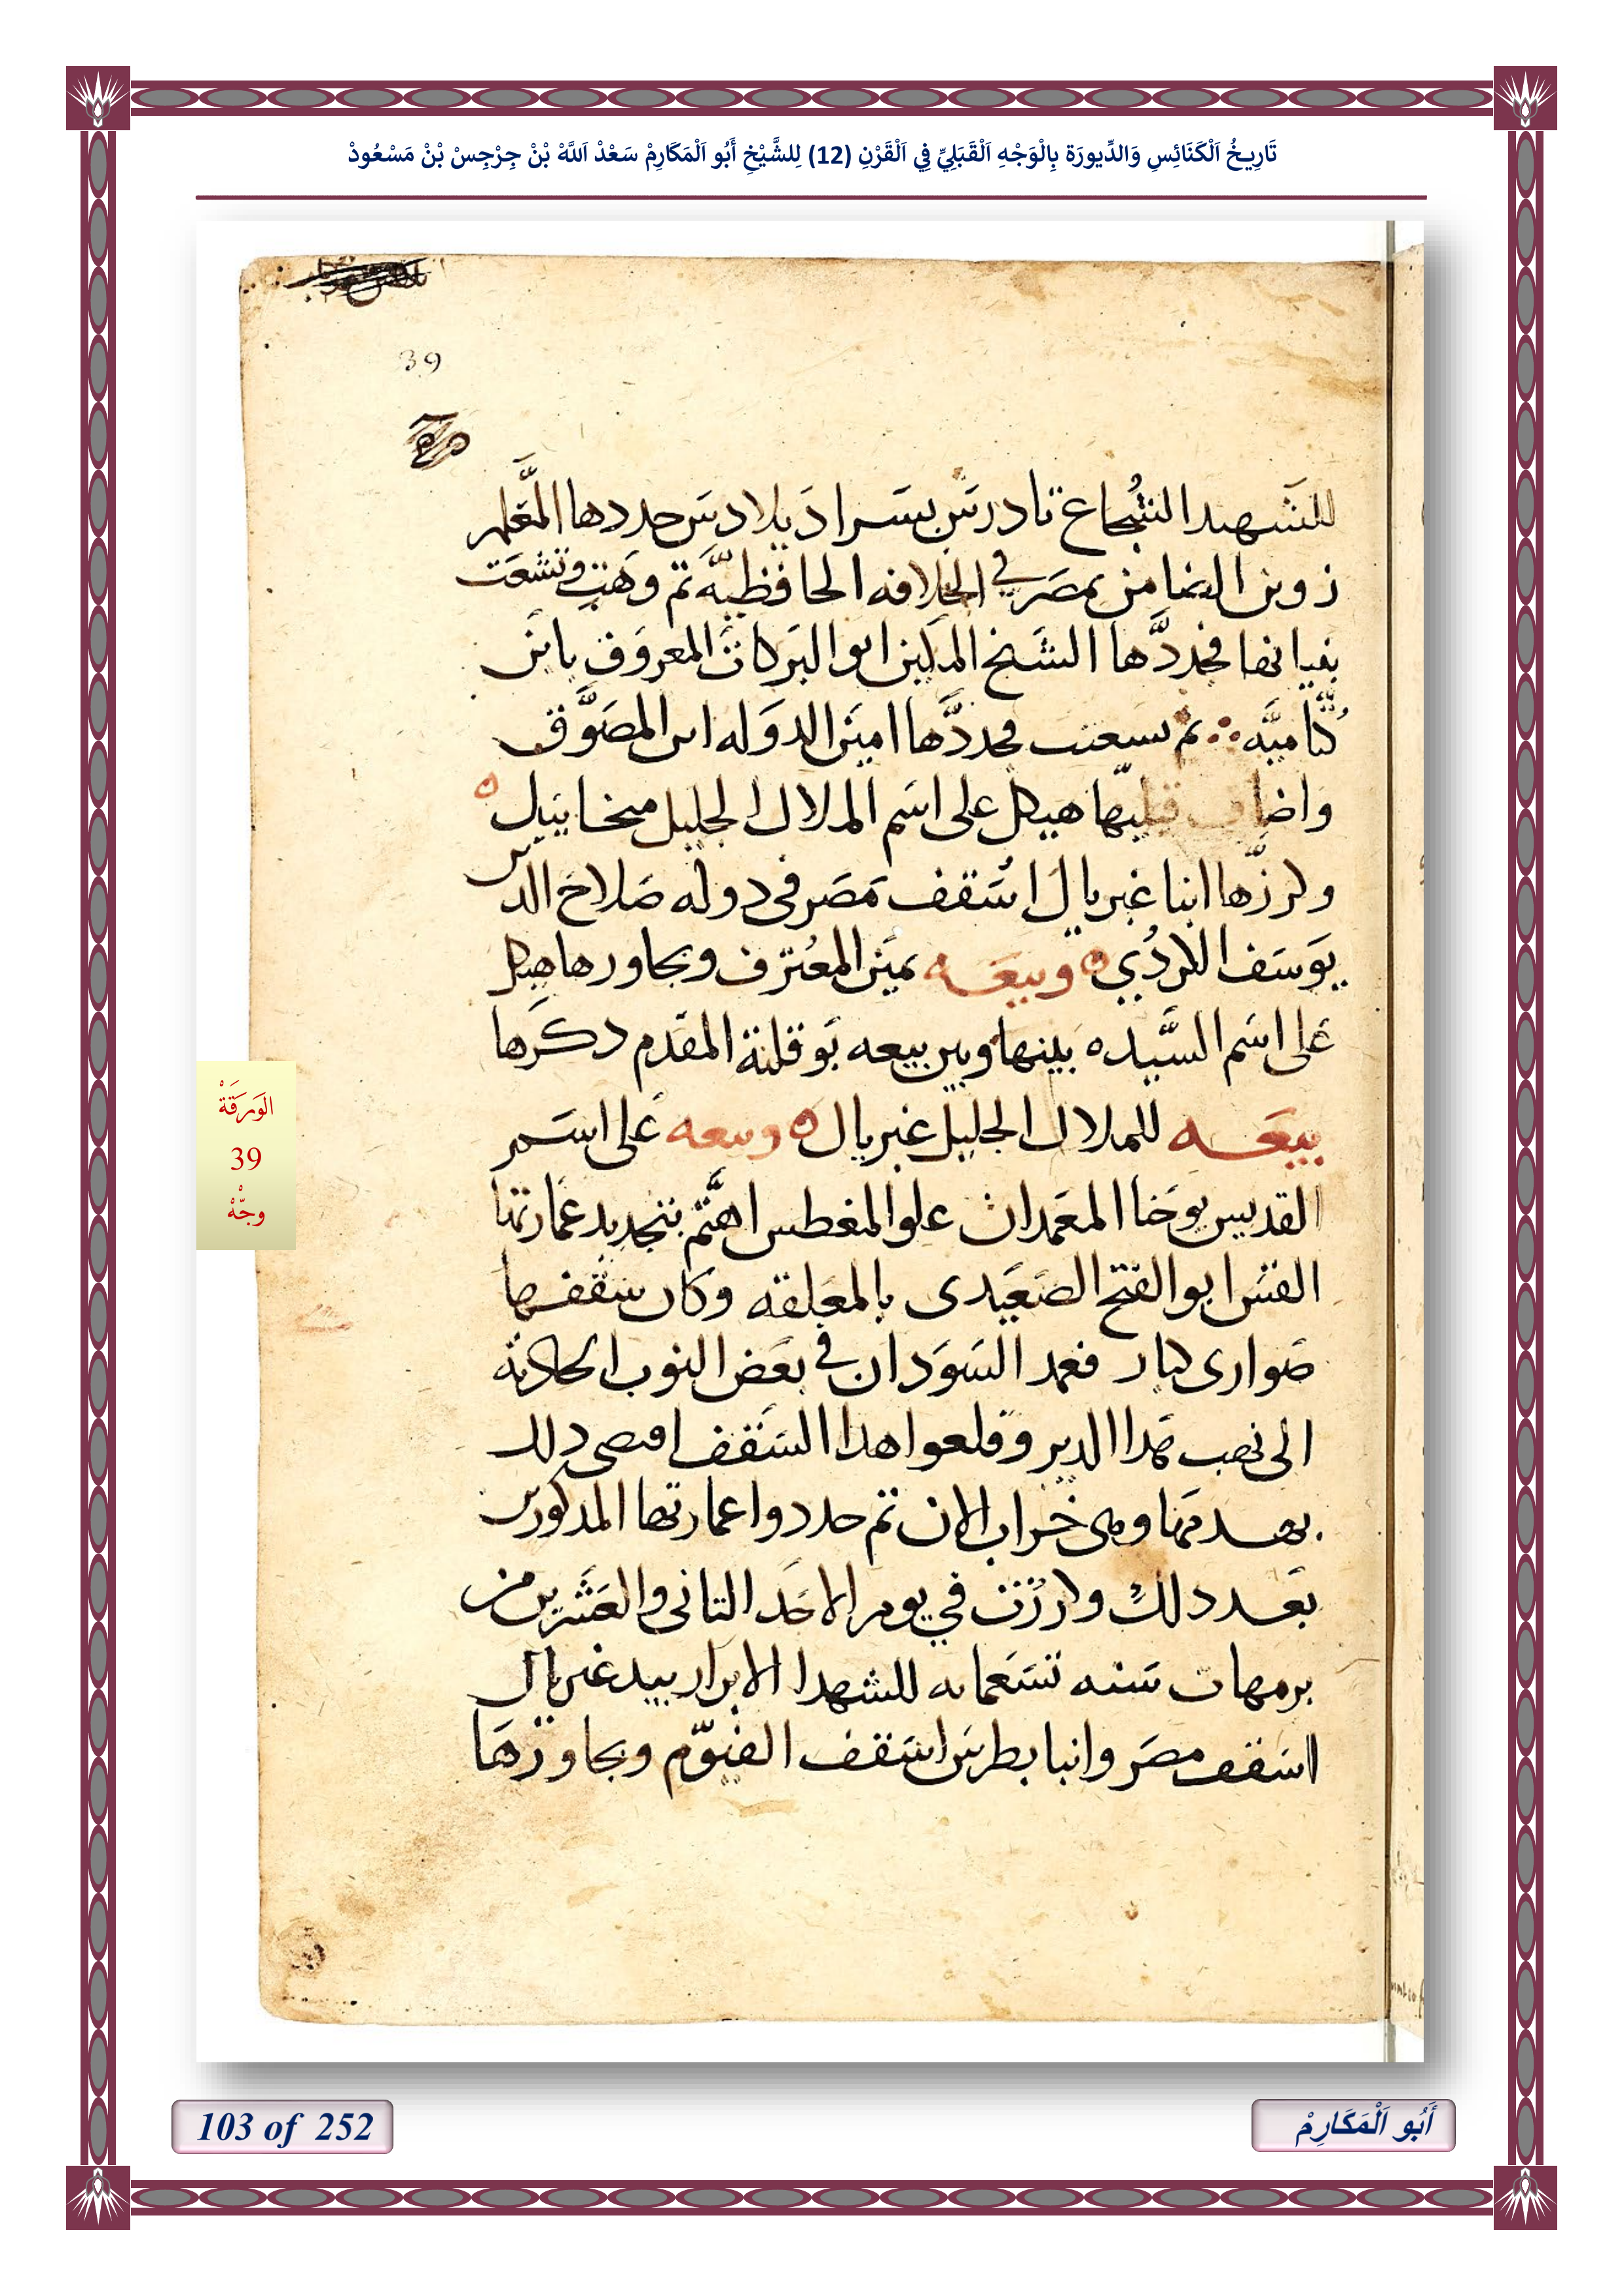 تَارِيخُ اَلْكَنَائِسِ وَالدِّيورَة بِالْوَجْهِ اَلْقَبَلِيِّ فِي اَلْقَرْنِ (12) لِلشَّيْخِ أَبُو اَلْمَكَارِمْ سَعْدْ اَللَّهْ بْنْ جِرْجِسْ بْنْ مَسْعُودْ
39
للشهيد الشجاع تادرس بسرادبلادس جددها المعلم
زوين الضامن بمصر في الخلافه الحافظيه ثم وهت وتشعت
بنيانها فجددها الشيخ المكين ابو البركات المعروف بابن
كتاميه ثم تسعتت فجددها امين الدوله ابن المصوف
واضاف قبليها هيكل على اسم الملاك الجليل ميخاييل ه
وكرزها انبا غبريال اسقف مصر فى دوله صلاح الدين
يوسف الكردي ه وبيعه بمين المعترف ويجاورها هيكل
على اسم السيده بينها وبين بيعه بوقلتة المقدم دكرها
بيعه للملاك الجليل غبريال ه وبيعه على اسم
القديس يوحنا المعمدان علو المغطس اهتم بتجديد عمارتها
القس ابو الفتح الصعيدى بالمعلقه وكان سقفها
صوارى كبار فعمد السودان في بعض النوب الحادثة
الى نهب هدا الدير وقلعوا هدا السقف اقتصى دلك
بهدمها وهى خراب الان تم جددوا عمارتها المدكورين
بعد دلك وكرزت في يوم الاحد التانى والعشرين من
برمهات سنه تسعمايه للشهدا الابرار بيد غبريال
اسقف مصر وانبا بطرس اسقف الفيوم ويجاورها
الوَرَقَةْ
39
وجّهْ
103 of 252
أَبُو اَلْمَكَارِمْ